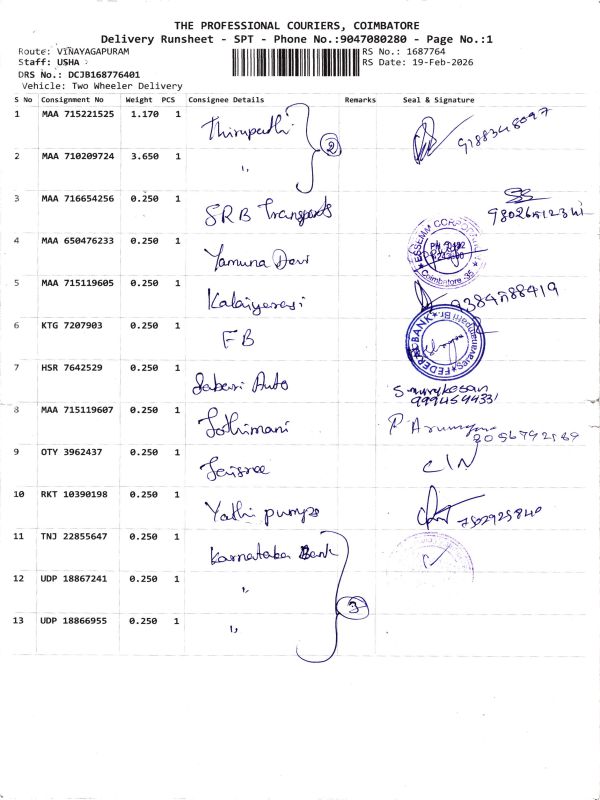 THE PROFESSIONAL COURIERS, COIMBATORE
Delivery Runsheet - SPT - Phone No.:9047080280 - Page No.:1
Route: VINAYAGAPURAM
Staff: USHA
DRS No.: DCJB168776401
Vehicle: Two Wheeler Delivery
RS No.: 1687764
RS Date: 19-Feb-2026
S No Consignment No Weight PCS Consignee Details Remarks Seal & Signature
1 MAA 715221525 1.170 1 Thirupathi 2 9188348097
2 MAA 710209724 3.650 1 "
3 MAA 716654256 0.250 1 SRB Transports
4 MAA 650476233 0.250 1 Yamuna Devi
Coimbatore-35
5 MAA 715119605 0.250 1 Kalaiyarasi
6 KTG 7207903 0.250 1 FB
FEDERAL BANK
7 HSR 7642529 0.250 1 Sabari Auto
8 MAA 715119607 0.250 1 Jothimani
9 OTY 3962437 0.250 1 Jaisree
10 RKT 10390198 0.250 1 Yathi pumps 7502925840
11 TNJ 22855647 0.250 1 Karnataka Bank
12 UDP 18867241 0.250 1 " 3
13 UDP 18866955 0.250 1 "